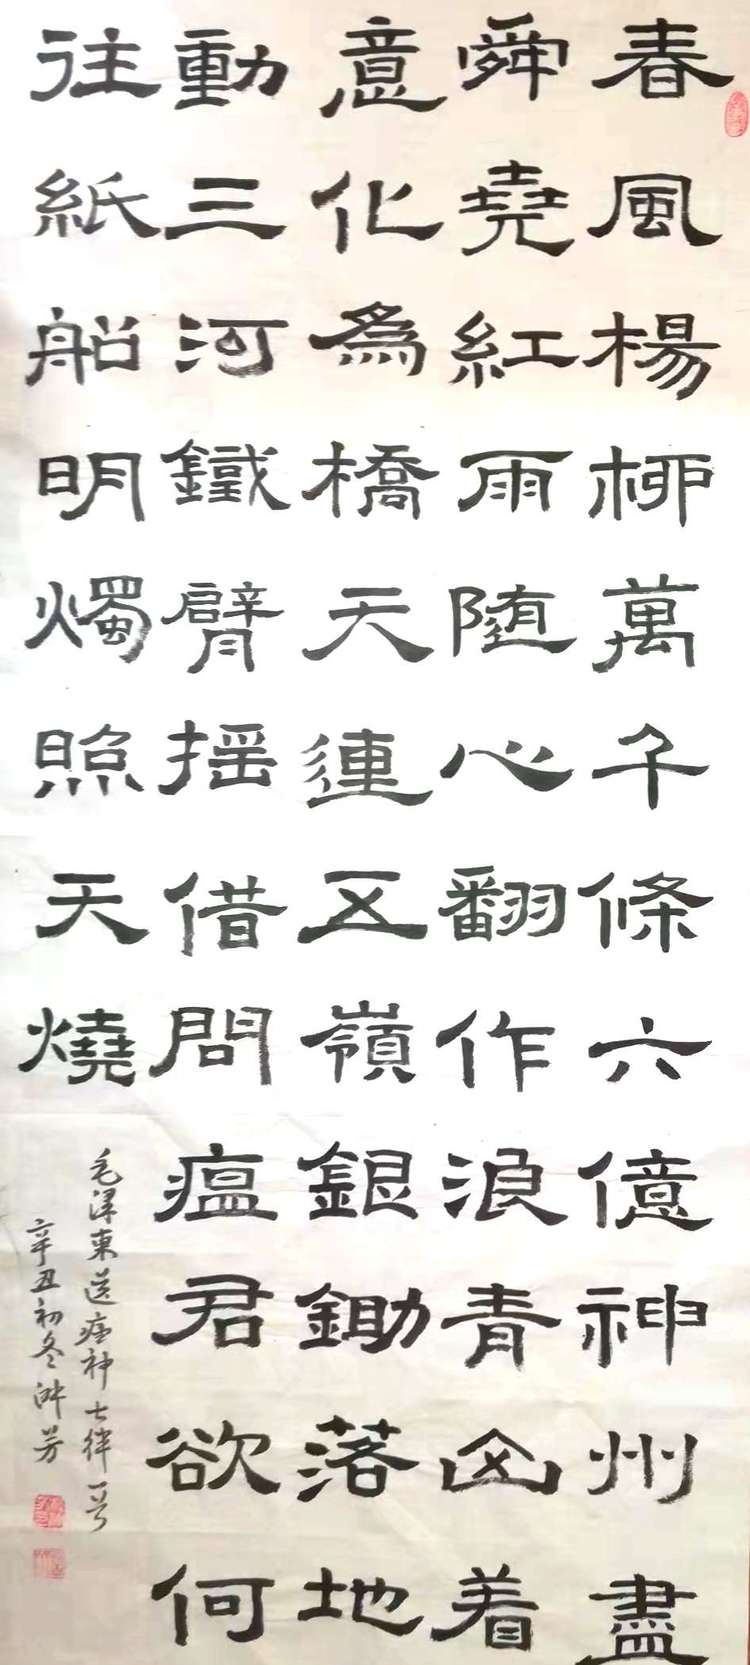 春風楊柳萬千條六億神州盡
舜堯紅雨随心翻作浪青山着
意化為橋天連五嶺銀鋤落地
動三河鐵臂摇借問瘟君欲何
往紙船明燭照天燒
毛澤東送瘟神七律一首
辛丑初冬 芳